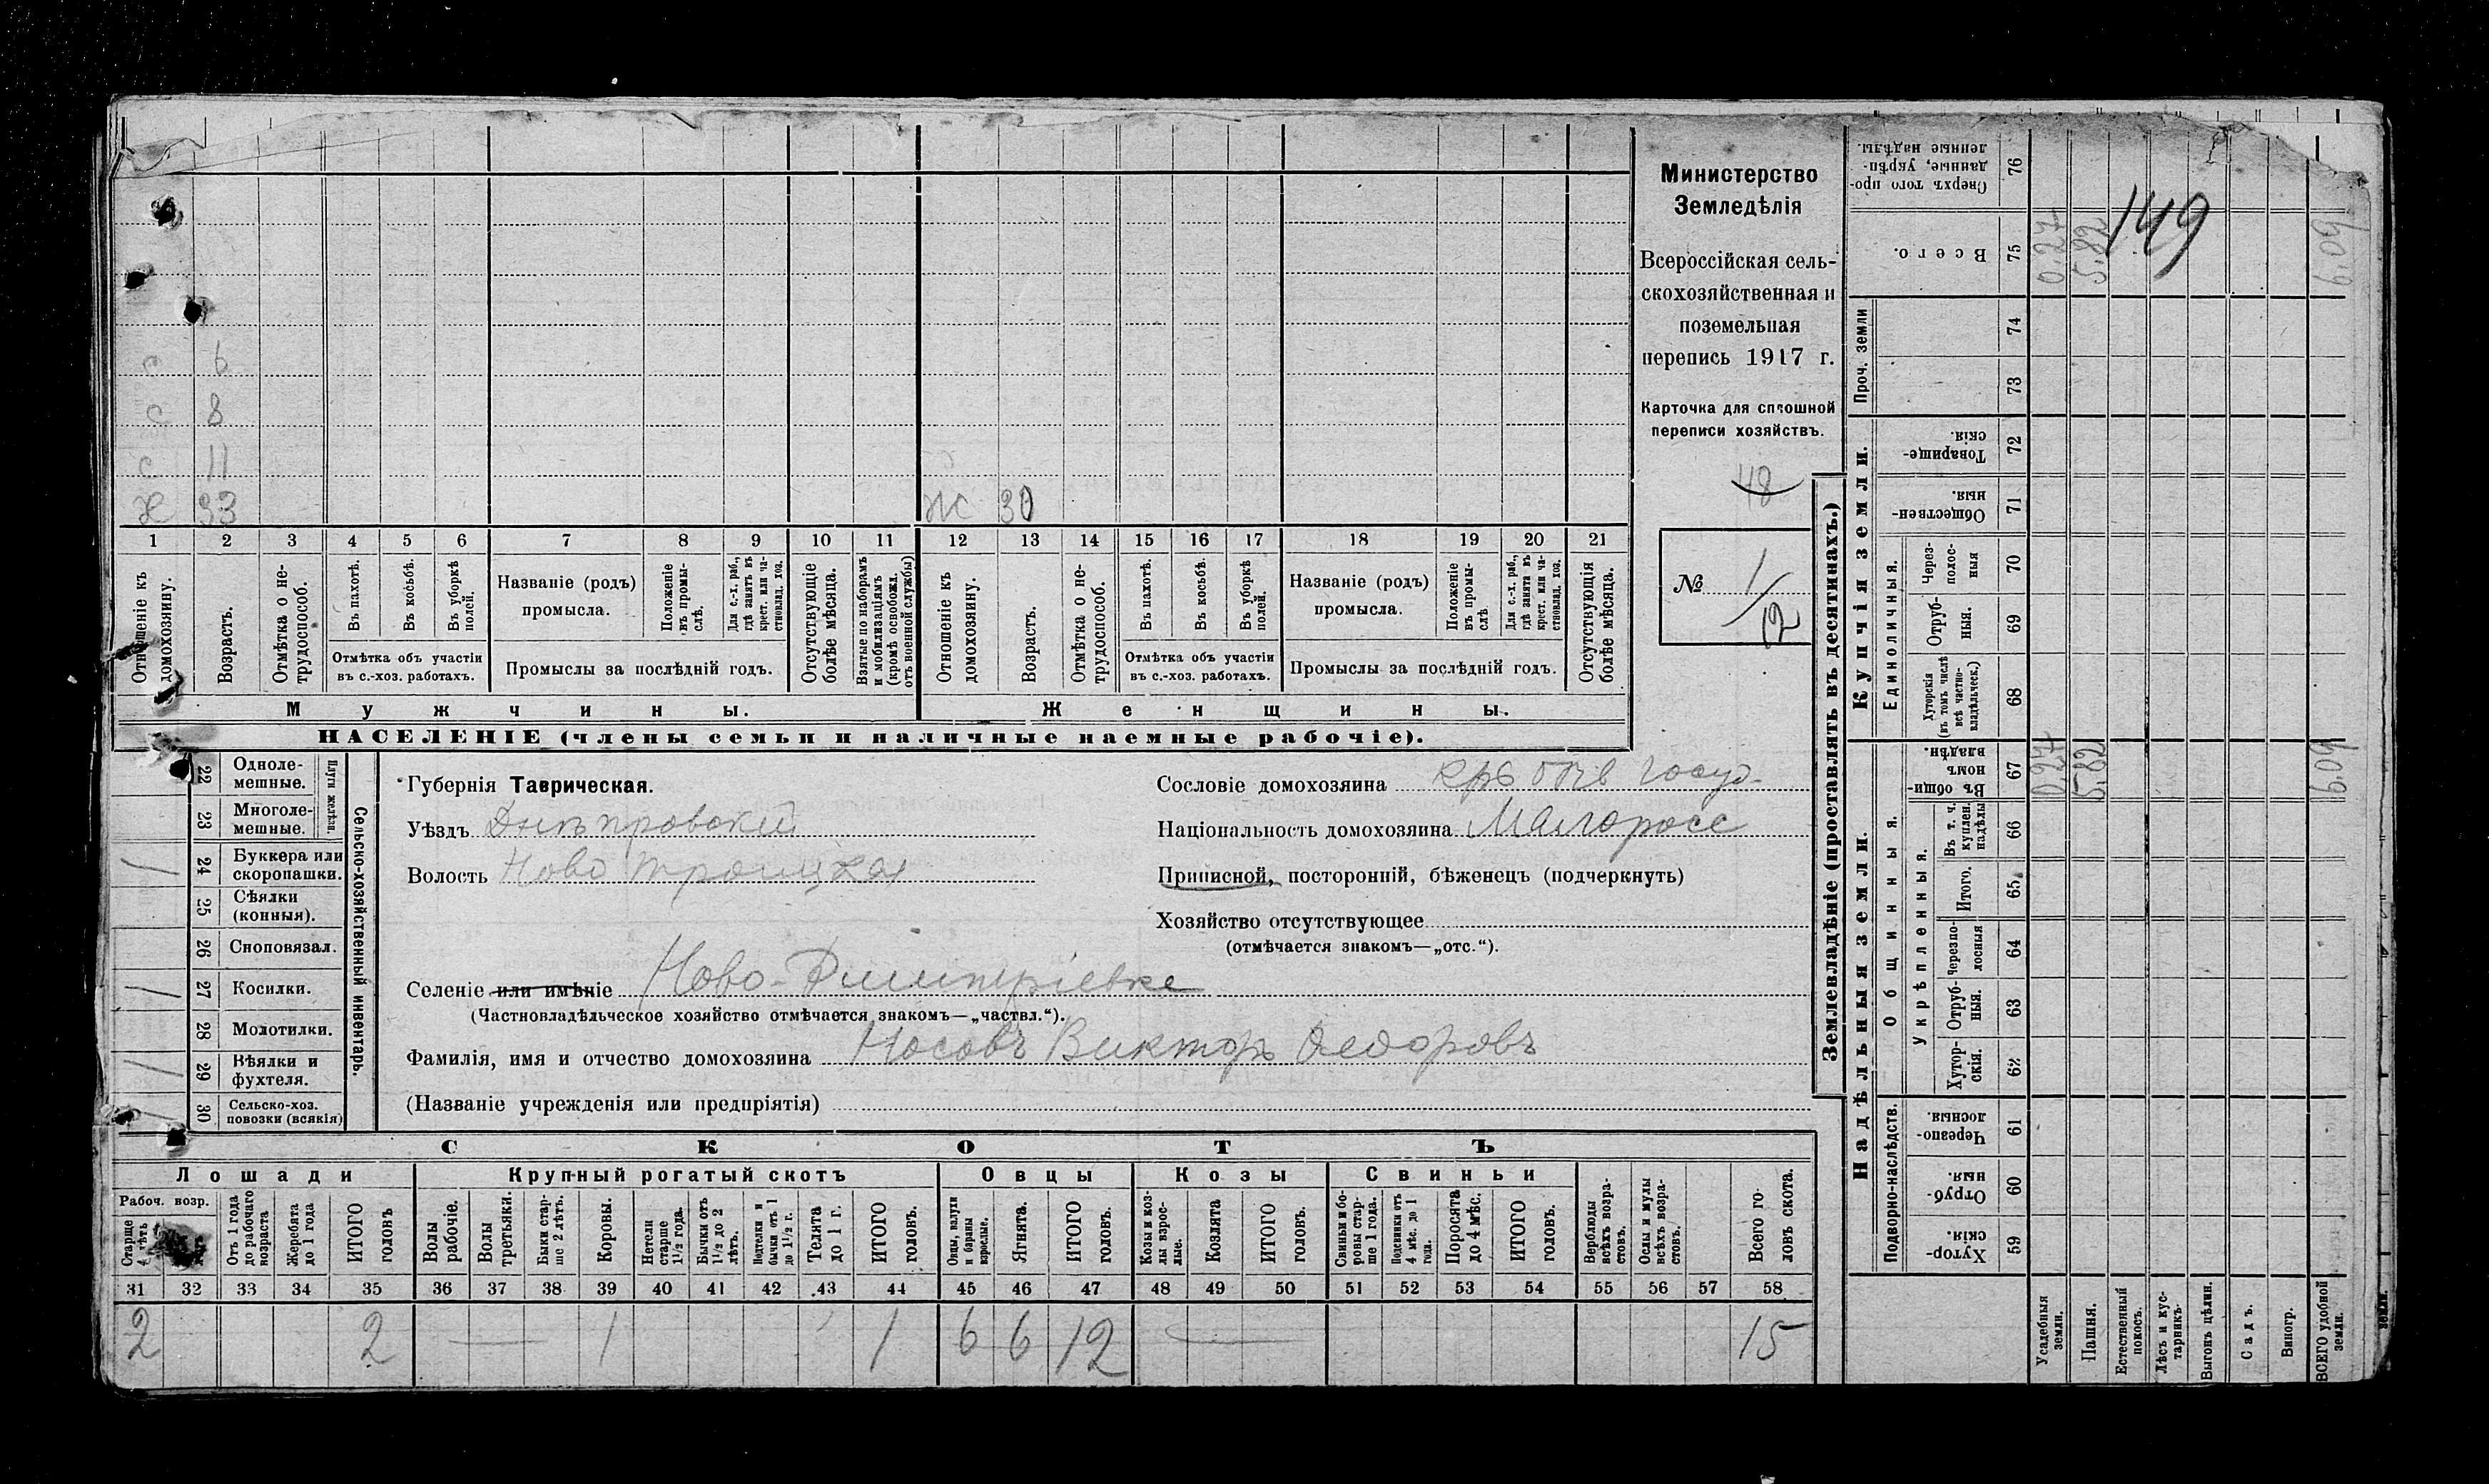 с 6
с 8
с 11
х 33 Ж 30
1 2 3 4 5 6 7 8 9 10 11 12 13 14 15 16 17 18 19 20 21
Отношеніе къ домохозяину.
Возрастъ.
Отмѣтка о не-трудоспособ.
Въ пахотѣ.
Въ косьбѣ.
Въ уборкѣ полей.
Отмѣтка объ участіи
въ с.-хоз. работахъ.
Названіе (родъ)
промысла.
Положеніе въ промы-слѣ.
Для с.-х. раб., гдѣ занятъ въ крест. или ча-стновлад. хоз.
Промыслы за послѣдній годъ.
Отсутствующіе болѣе мѣсяца.
Взятые по наборамъ и мобилизаціямъ (кромѣ освобожд. отъ военной службы)
Отношеніе къ домохозяину.
Возрастъ.
Отмѣтка о не-трудоспособ.
Въ пахотѣ.
Въ косьбѣ.
Въ уборкѣ полей.
Отмѣтка объ участіи
въ с.-хоз. работахъ.
Названіе (родъ)
промысла.
Положеніе въ промы-слѣ
Для с.-х. раб., гдѣ занята въ крест. или ча-стновлад. хоз.
Промыслы за послѣдній годъ.
Отсутствующія болѣе мѣсяца.
Мужчины. Женщины.
НАСЕЛЕНІЕ (члены семьи и наличные наемные рабочіе).
Министерство
Земледѣлія
Всероссійская сель-
скохозяйственная и
поземельная
перепись 1917 г.
Карточка для сплошной
переписи хозяйствъ.
48
№ 1/12
22 Одноле-мешные.
23 Многоле-мешные.
Плуги желѣзн.
/ 24 Буккера или скоропашки.
25 Сѣялки (конныя).
26 Сноповязал.
/ 27 Косилки.
28 Молотилки.
/ 29 Вѣялки и фухтеля.
/ 30 Сельско-хоз. повозки (всякія)
Сельско-хозяйственный инвентарь.
Губернія Таврическая.
Уѣздъ Днѣпровскій
Волость Ново Троицкая
Сословіе домохозяина крб быв госуд.
Національность домохозяина Малоросс
Приписной, посторонній, бѣженецъ (подчеркнуть)
Хозяйство отсутствующее
(отмѣчается знакомъ—„отс.“).
Селеніе или имѣніе Ново-Дмитріевке
(Частновладѣльческое хозяйство отмѣчается знакомъ—„частвл.“).
Фамилія, имя и отчество домохозяина Носовъ Викторъ Федоровъ
(Названіе учрежденія или предпріятія)
СКОТЪ
Лошади Крупный рогатый скотъ Овцы Козы Свиньи
Рабоч. возр.
Старше 4 лѣтъ
Отъ 1 года до рабочаго возраста
Жеребята до 1 года
ИТОГО головъ
Волы рабочіе.
Волы третьяки.
Быки стар-ше 2 лѣтъ.
Коровы.
Нетели старше 1½ года.
Бычки отъ 1½ до 2 лѣтъ.
Подтелки и бычки отъ 1 до 1½ г.
Телята до 1 г.
ИТОГО головъ.
Овцы, валухи и бараны взрослые.
Ягнята.
ИТОГО головъ.
Козы и коз-лы взрос-лые.
Козлята
ИТОГО головъ.
Свиньи и бо-ровы стар-ше 1 года.
Подсвинки отъ 4 мѣс. до 1 года.
Поросята до 4 мѣс.
ИТОГО головъ.
Верблюды всѣхъ возра-стовъ.
Ослы и мулы всѣхъ возра-стовъ.
Всего го-ловъ скота.
31 32 33 34 35 36 37 38 39 40 41 42 43 44 45 46 47 48 49 50 51 52 53 54 55 56 57 58
2 2 — 1 1 6 6 12 — 15
Землевладѣніе (проставлять въ десятинахъ.)
Надѣльныя земли. Купчія земли. Проч. земли
Подворно-наслѣдств.
Общинныя.
Укрѣпленныя.
Единоличныя.
Сверхъ того про-данные, укрѣп-ленные надѣлы. 76
Всего. 75 0.27 5.82 149 6.09
74
73
Товарище-скія. 72
Обществен-ныя. 71
Через-полос-ныя 70
Отруб-ныя. 69
Хуторскія (въ томъ числѣ всѣ частно-владѣльческ.) 68
Въ общи-номъ владѣн. 67 0.27 5.82 6.09
Въ т. ч. куплен. надѣлы 66
Итого. 65
Черезпо-лосныя 64
Отруб-ныя. 63
Хутор-скія. 62
Черезпо-лосныя. 61
Отруб-ныя. 60
Хутор-скія. 59
Усадебныя земли.
Пашня.
Естественный покосъ.
Лѣсъ и кус-тарникъ.
Выгонъ цѣлин.
Садъ.
Виногр.
ВСЕГО удобной земли.
земли.